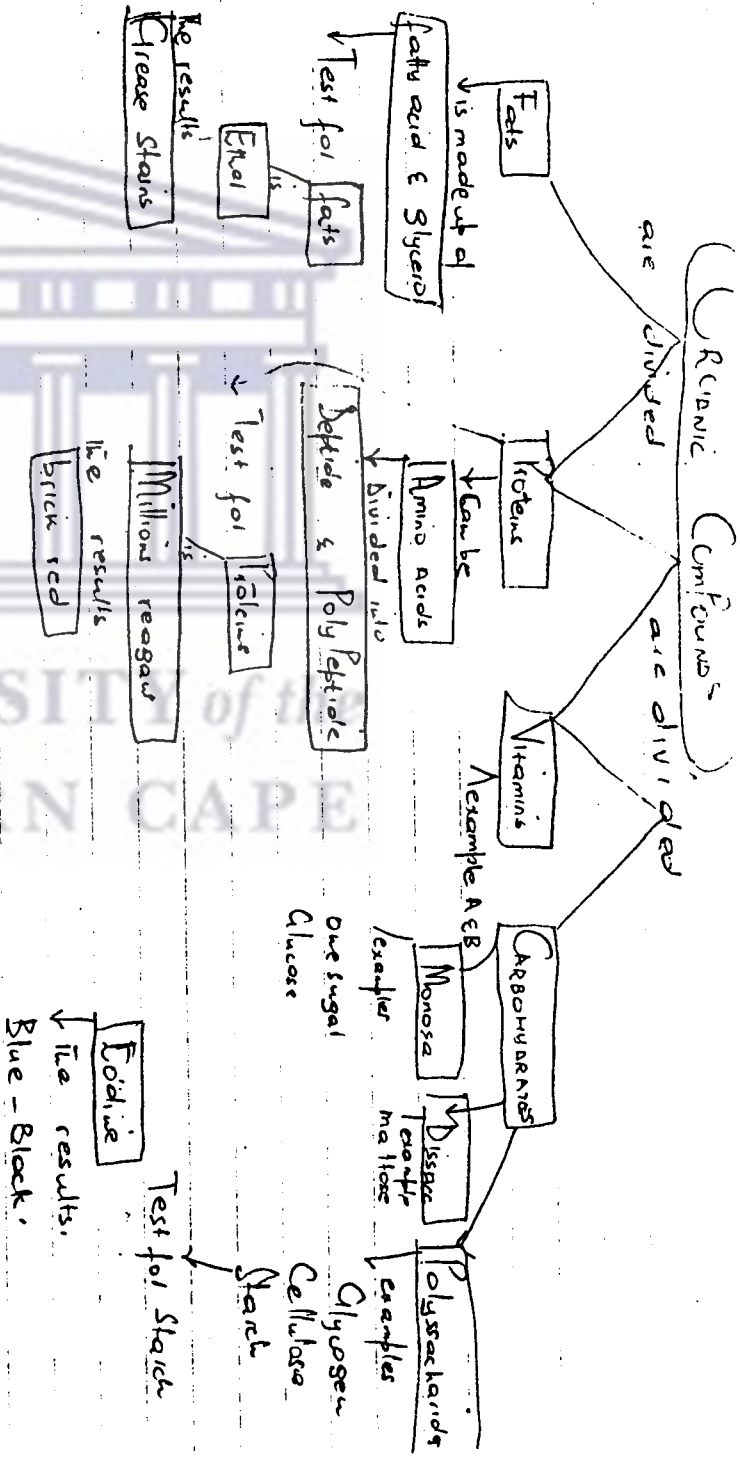 ORGANIC COMPOUNDS
are divided
are divided
Fats
is made up of
fatty acid & glycerol
Test for fats
is
Ether
The results
Grease Stains
Proteins
Can be
Amino Acids
Divided into
Peptide & Poly Peptide
Test for Proteins
is
Millions reagan
The results
brick red
Vitamins
example A & B
CARBOHYDRATES
Monosa
examples
one sugar
Glucose
Dissacc
example
maltose
Polyssacharids
examples
Glycogen
Cellulose
Starch
Test for Starch
Eodine
The results.
Blue-Black.
SITY of the
N CAPE